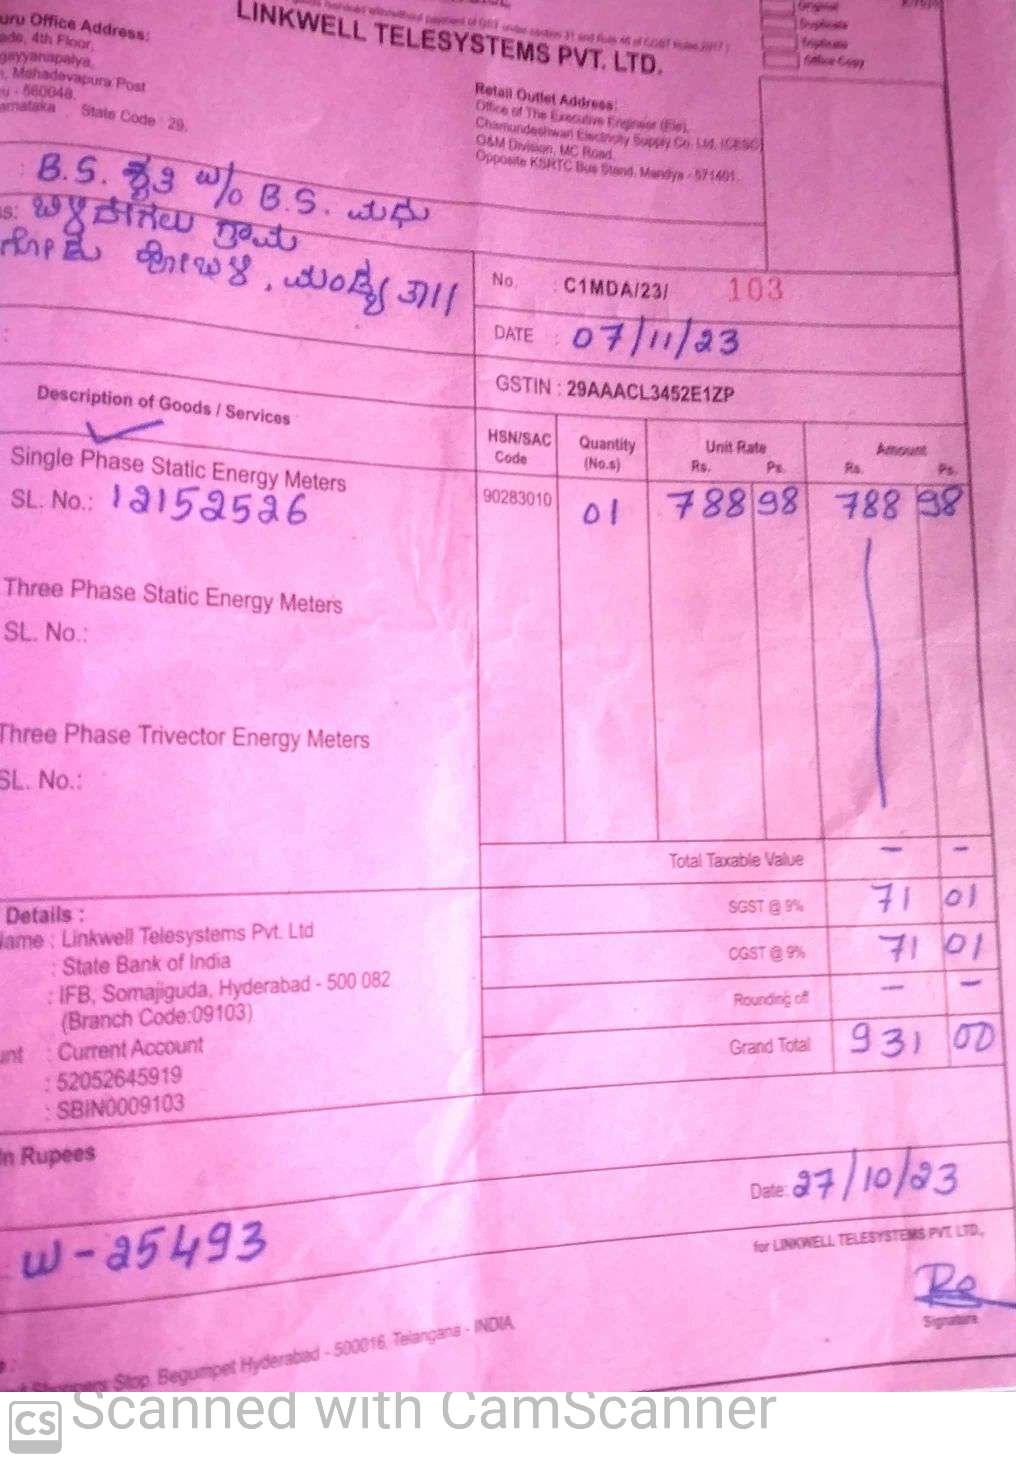 LINKWELL TELESYSTEMS PVT. LTD.
Original
Duplicate
Triplicate
Office Copy
uru Office Address:
ade, 4th Floor,
gayyanapalya,
, Mahadevapura Post
u - 560048.
arnataka State Code : 29.
Retail Outlet Address:
Office of The Executive Engineer (Ele),
Chamundeshwari Electricity Supply Co. Ltd. (CESC)
O&M Division, MC Road,
Opposite KSRTC Bus Stand, Mandya - 571401.
: B.S. W/o B.S. ಮಧು
ss: ಗ್ರಾಮ
ಮಂಡ್ಯ ತಾ||
No. : C1MDA/23/ 103
DATE : 07/11/23
GSTIN : 29AAACL3452E1ZP
Description of Goods / Services
HSN/SAC Code
Quantity (No.s)
Unit Rate Rs. Ps.
Amount Rs. Ps.
Single Phase Static Energy Meters
SL. No.: 12152526
90283010 01 788 98 788 98
Three Phase Static Energy Meters
SL. No.:
Three Phase Trivector Energy Meters
SL. No.:
Total Taxable Value - -
SGST @ 9% 71 01
CGST @ 9% 71 01
Rounding off - -
Grand Total 931 00
Details :
ame : Linkwell Telesystems Pvt. Ltd
: State Bank of India
: IFB, Somajiguda, Hyderabad - 500 082
(Branch Code:09103)
unt : Current Account
: 52052645919
: SBIN0009103
n Rupees
Date: 27/10/23
W-25493
for LINKWELL TELESYSTEMS PVT. LTD.,
Signature
Shoppers Stop, Begumpet Hyderabad - 500016, Telangana - INDIA
CS Scanned with CamScanner